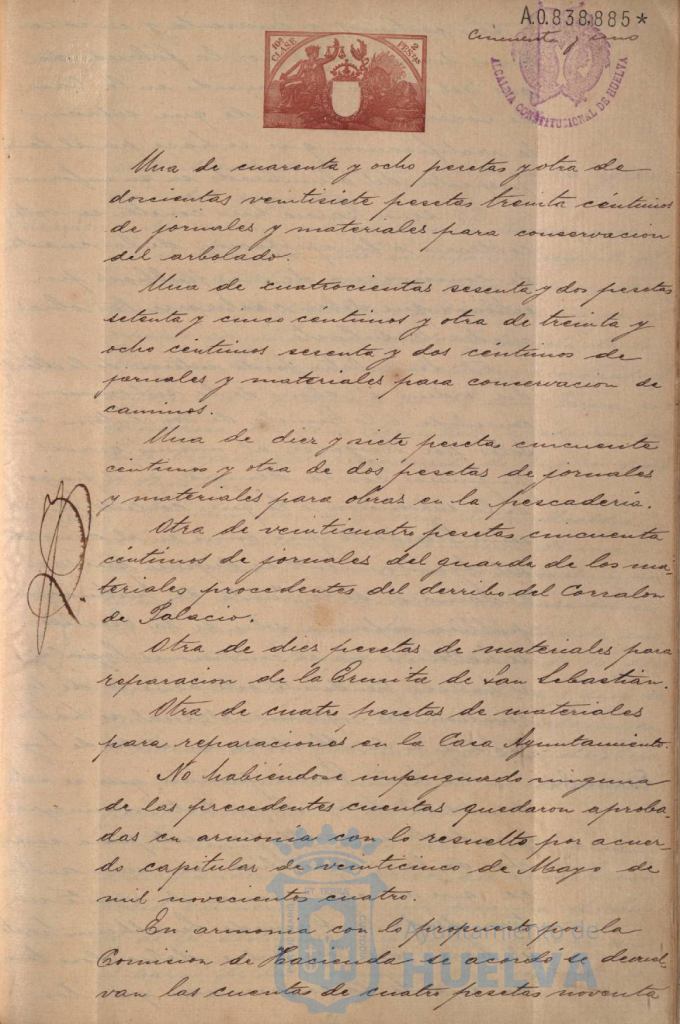 A.0.838.885*
Cincuenta y uno
10ª CLASE
2 PESTAS
ALCALDIA CONSTITUCIONAL DE HUELVA
Una de cuarenta y ocho pesetas y otra de
doscientas veintisiete pesetas treinta céntimos
de jornales y materiales para conservacion
del arbolado.
Una de cuatrocientas sesenta y dos pesetas
setenta y cinco céntimos y otra de treinta y
ocho céntimos sesenta y dos céntimos de
jornales y materiales para conservacion de
caminos.
Una de diez y siete peseta cincuente
céntimos y otra de dos pesetas de jornales
y materiales para obras en la pescadería.
Otra de veinticuatro pesetas cincuenta
céntimos de jornales del guarda de los ma-
teriales procedentes del derribo del Corralon
de Palacio.
Otra de diez pesetas de materiales para
reparacion de la Ermita de San Sebastián.
Otra de cuatro pesetas de materiales
para reparaciones en la Casa Ayuntamiento.
No habiéndose impugnado ninguna
de las precedentes cuentas quedaron aproba-
das en armonía con lo resuelto por acuer-
do capitular de veinticinco de Mayo de
mil novecientos cuatro.
En armonia con lo propuesto por la
Comision de Hacienda se acordó se devuel-
van las cuentas de cuatro pesetas noventa
Ayuntamiento de
HUELVA